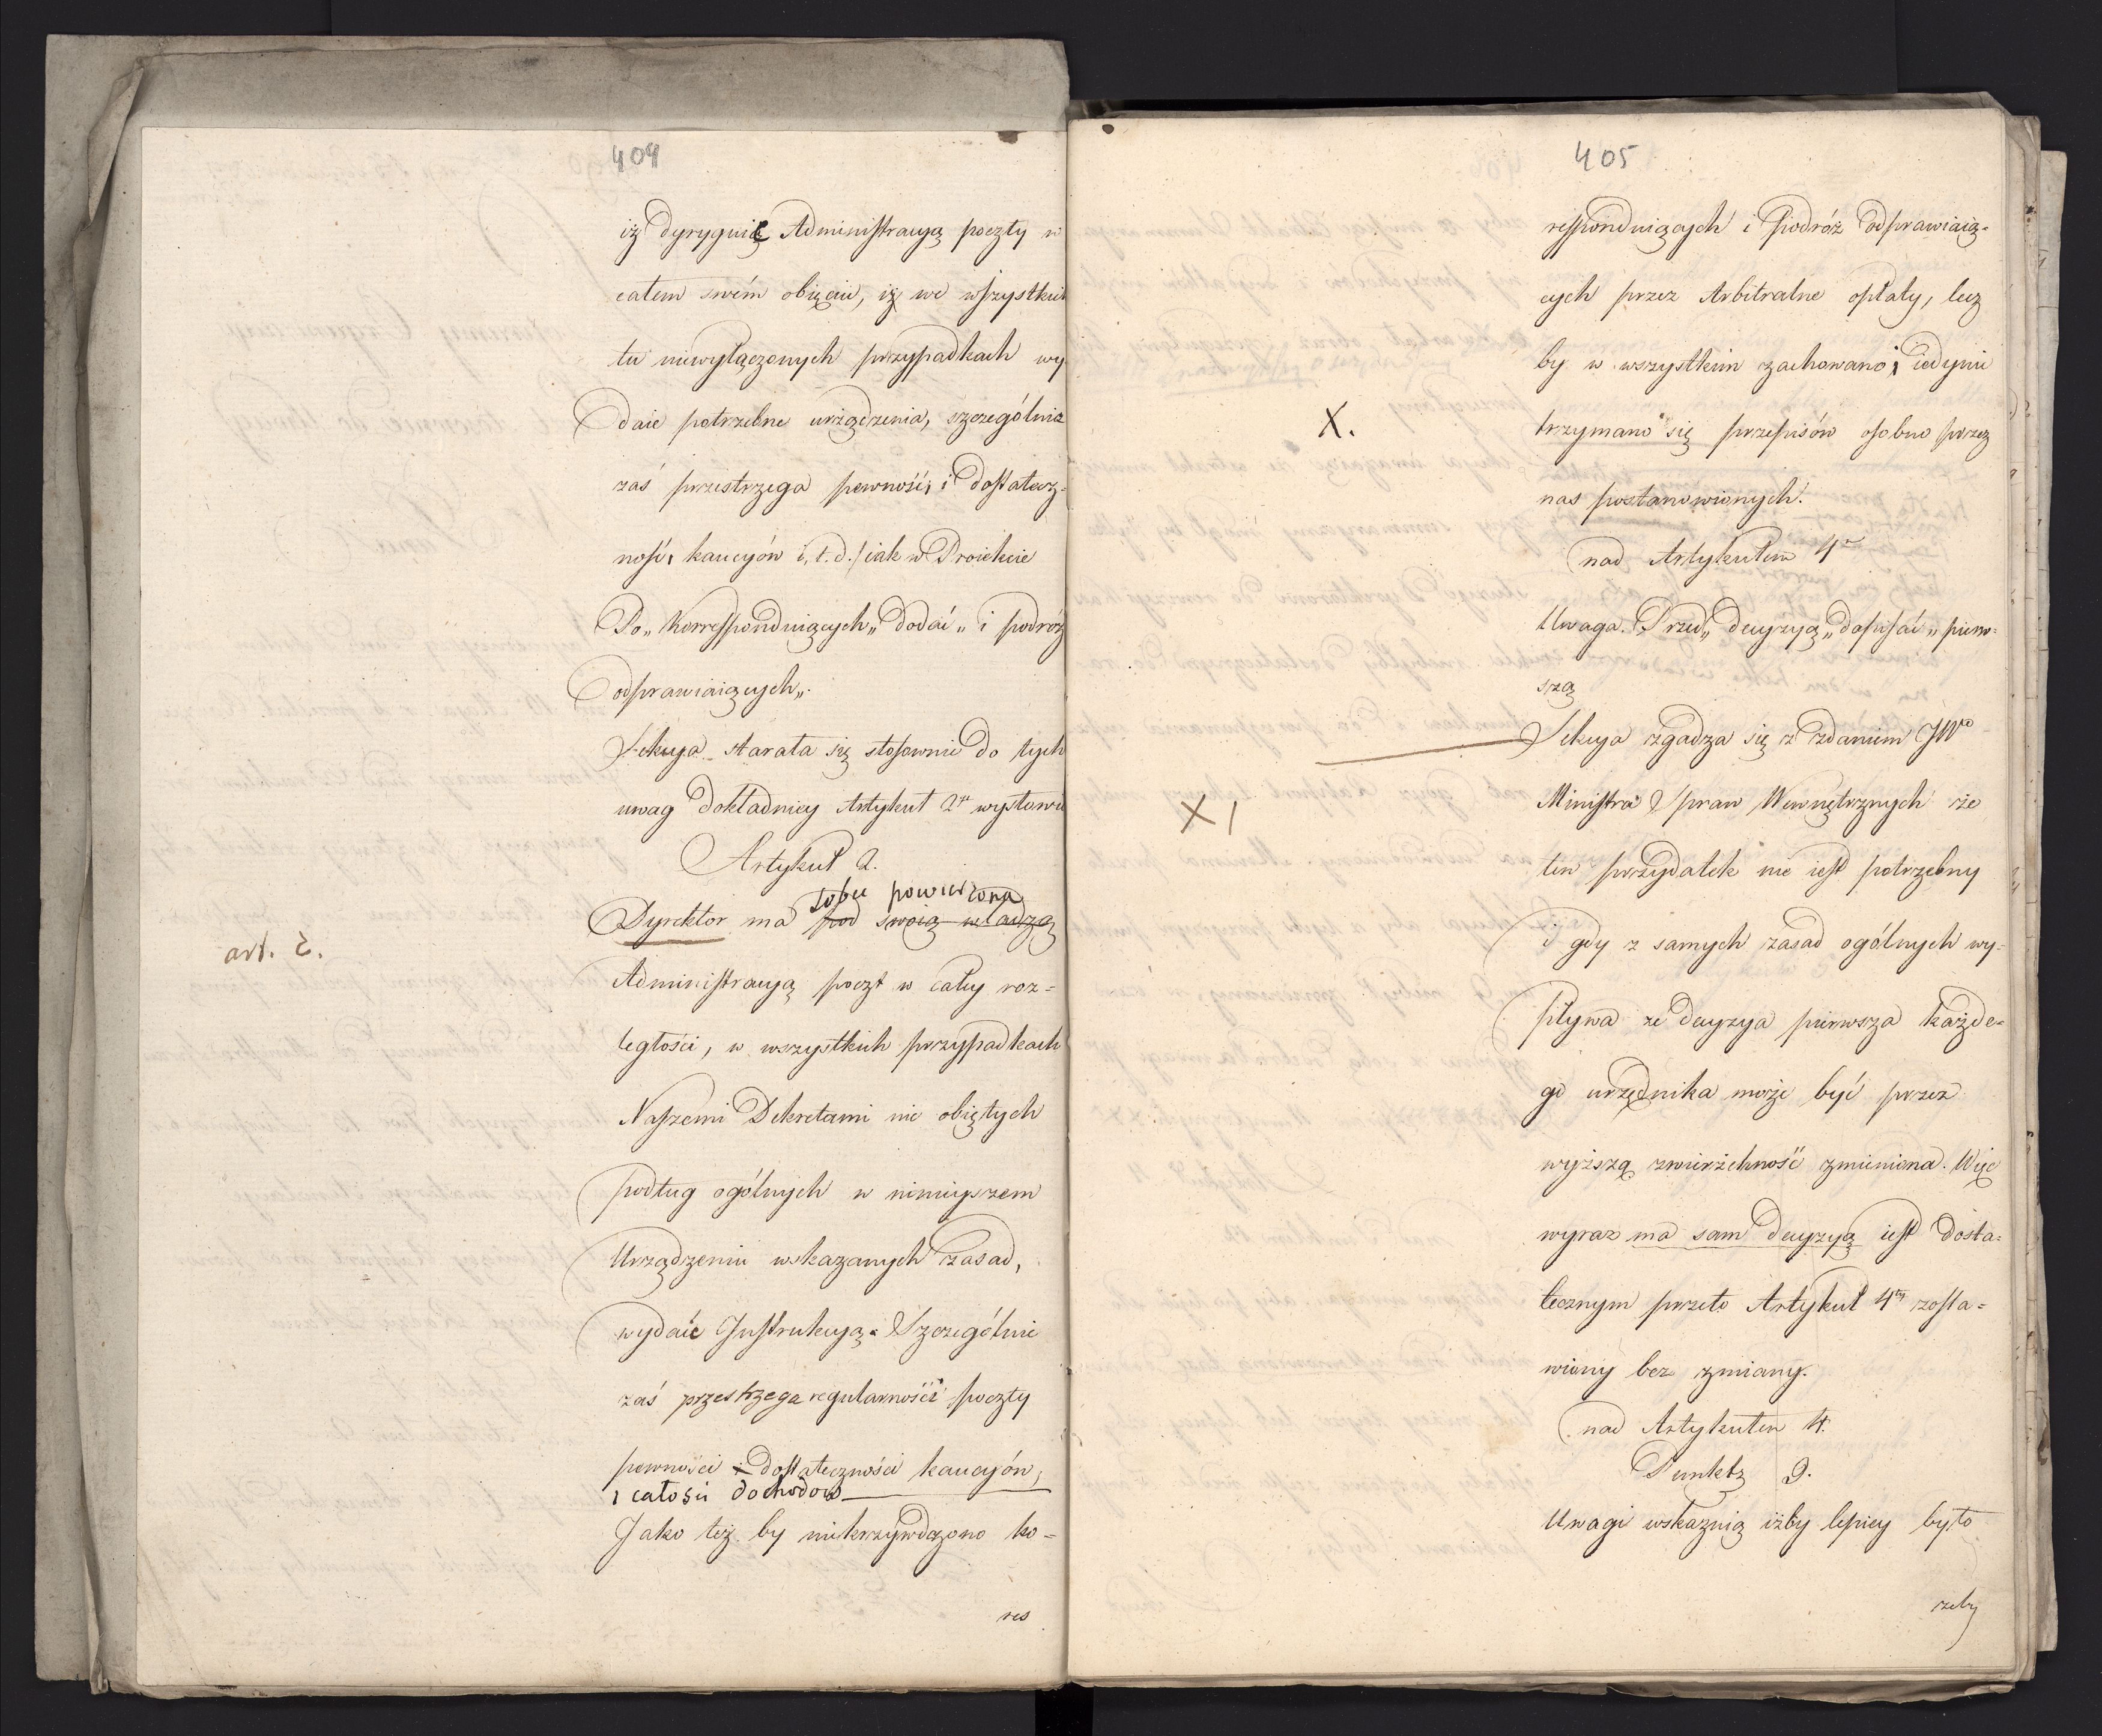 404
iż dyryguie Administracyą poczty w
całem swém obięciu, iż we wszystkich
tu niewyłączonych przypadkach wy
daie potrzebne urządzenia, szczególnie
zaś przestrzega pewności i dostatecz-
ności kaucyón i, t. d. / iak w Proiekcie
Po „Korrespónduiących„ dodać „ i podróż
odprawiaiących„.
Sekcya starała się stosownie do tych
uwag dokładniey Artykuł 2gi wystawić
Artykuł 2.
sobie powierzoną
art. 2.
Dyrektor ma pod swoią władzą
Administracyą poczt w całey roz-
ległości, w wszystkich przypadkach
Naszemi Dekretami nie obiętych
podług ogólnych w ninieyszem
Urządzeniu wskazanych zasad,
wydaie Instrukcyą. Szczególnie
zaś przestrzega regularności poczty
pewności i dostateczności kaucyón,
i całości dochodow
Jako też by niekrzywdzono ko-
res
405
respónduiących i podróż odprawiaią-
cych przez Arbitralne opłaty, lecz
by w wszystkim zachowano i iedynie
X.
trzymano się przepisów osobno przez
nas postanowionych.
nad Artykułem 4m
Uwaga. Przed „ decyzyą „ dopisać „ pierw-
szą
Sekcya zgadza się z zdaniem JWo
XI
Ministra Spraw Wewnętrznych że
ten przydatek nie iest potrzebny
i gdy z samych zasad ogólnych wy-
pływa że decyzya pierwsza każde-
go urzędnika może być przez
wyższą zwierzchność zmieniona. Więc
wyraz ma sam decyzyą iest dosta-
tecznym przeto Artykuł 4ty zosta-
wiony bez zmiany.
nad Artykułem 4.
Punktz 9.
Uwagi wskazuią iżby lepiey było
żeby